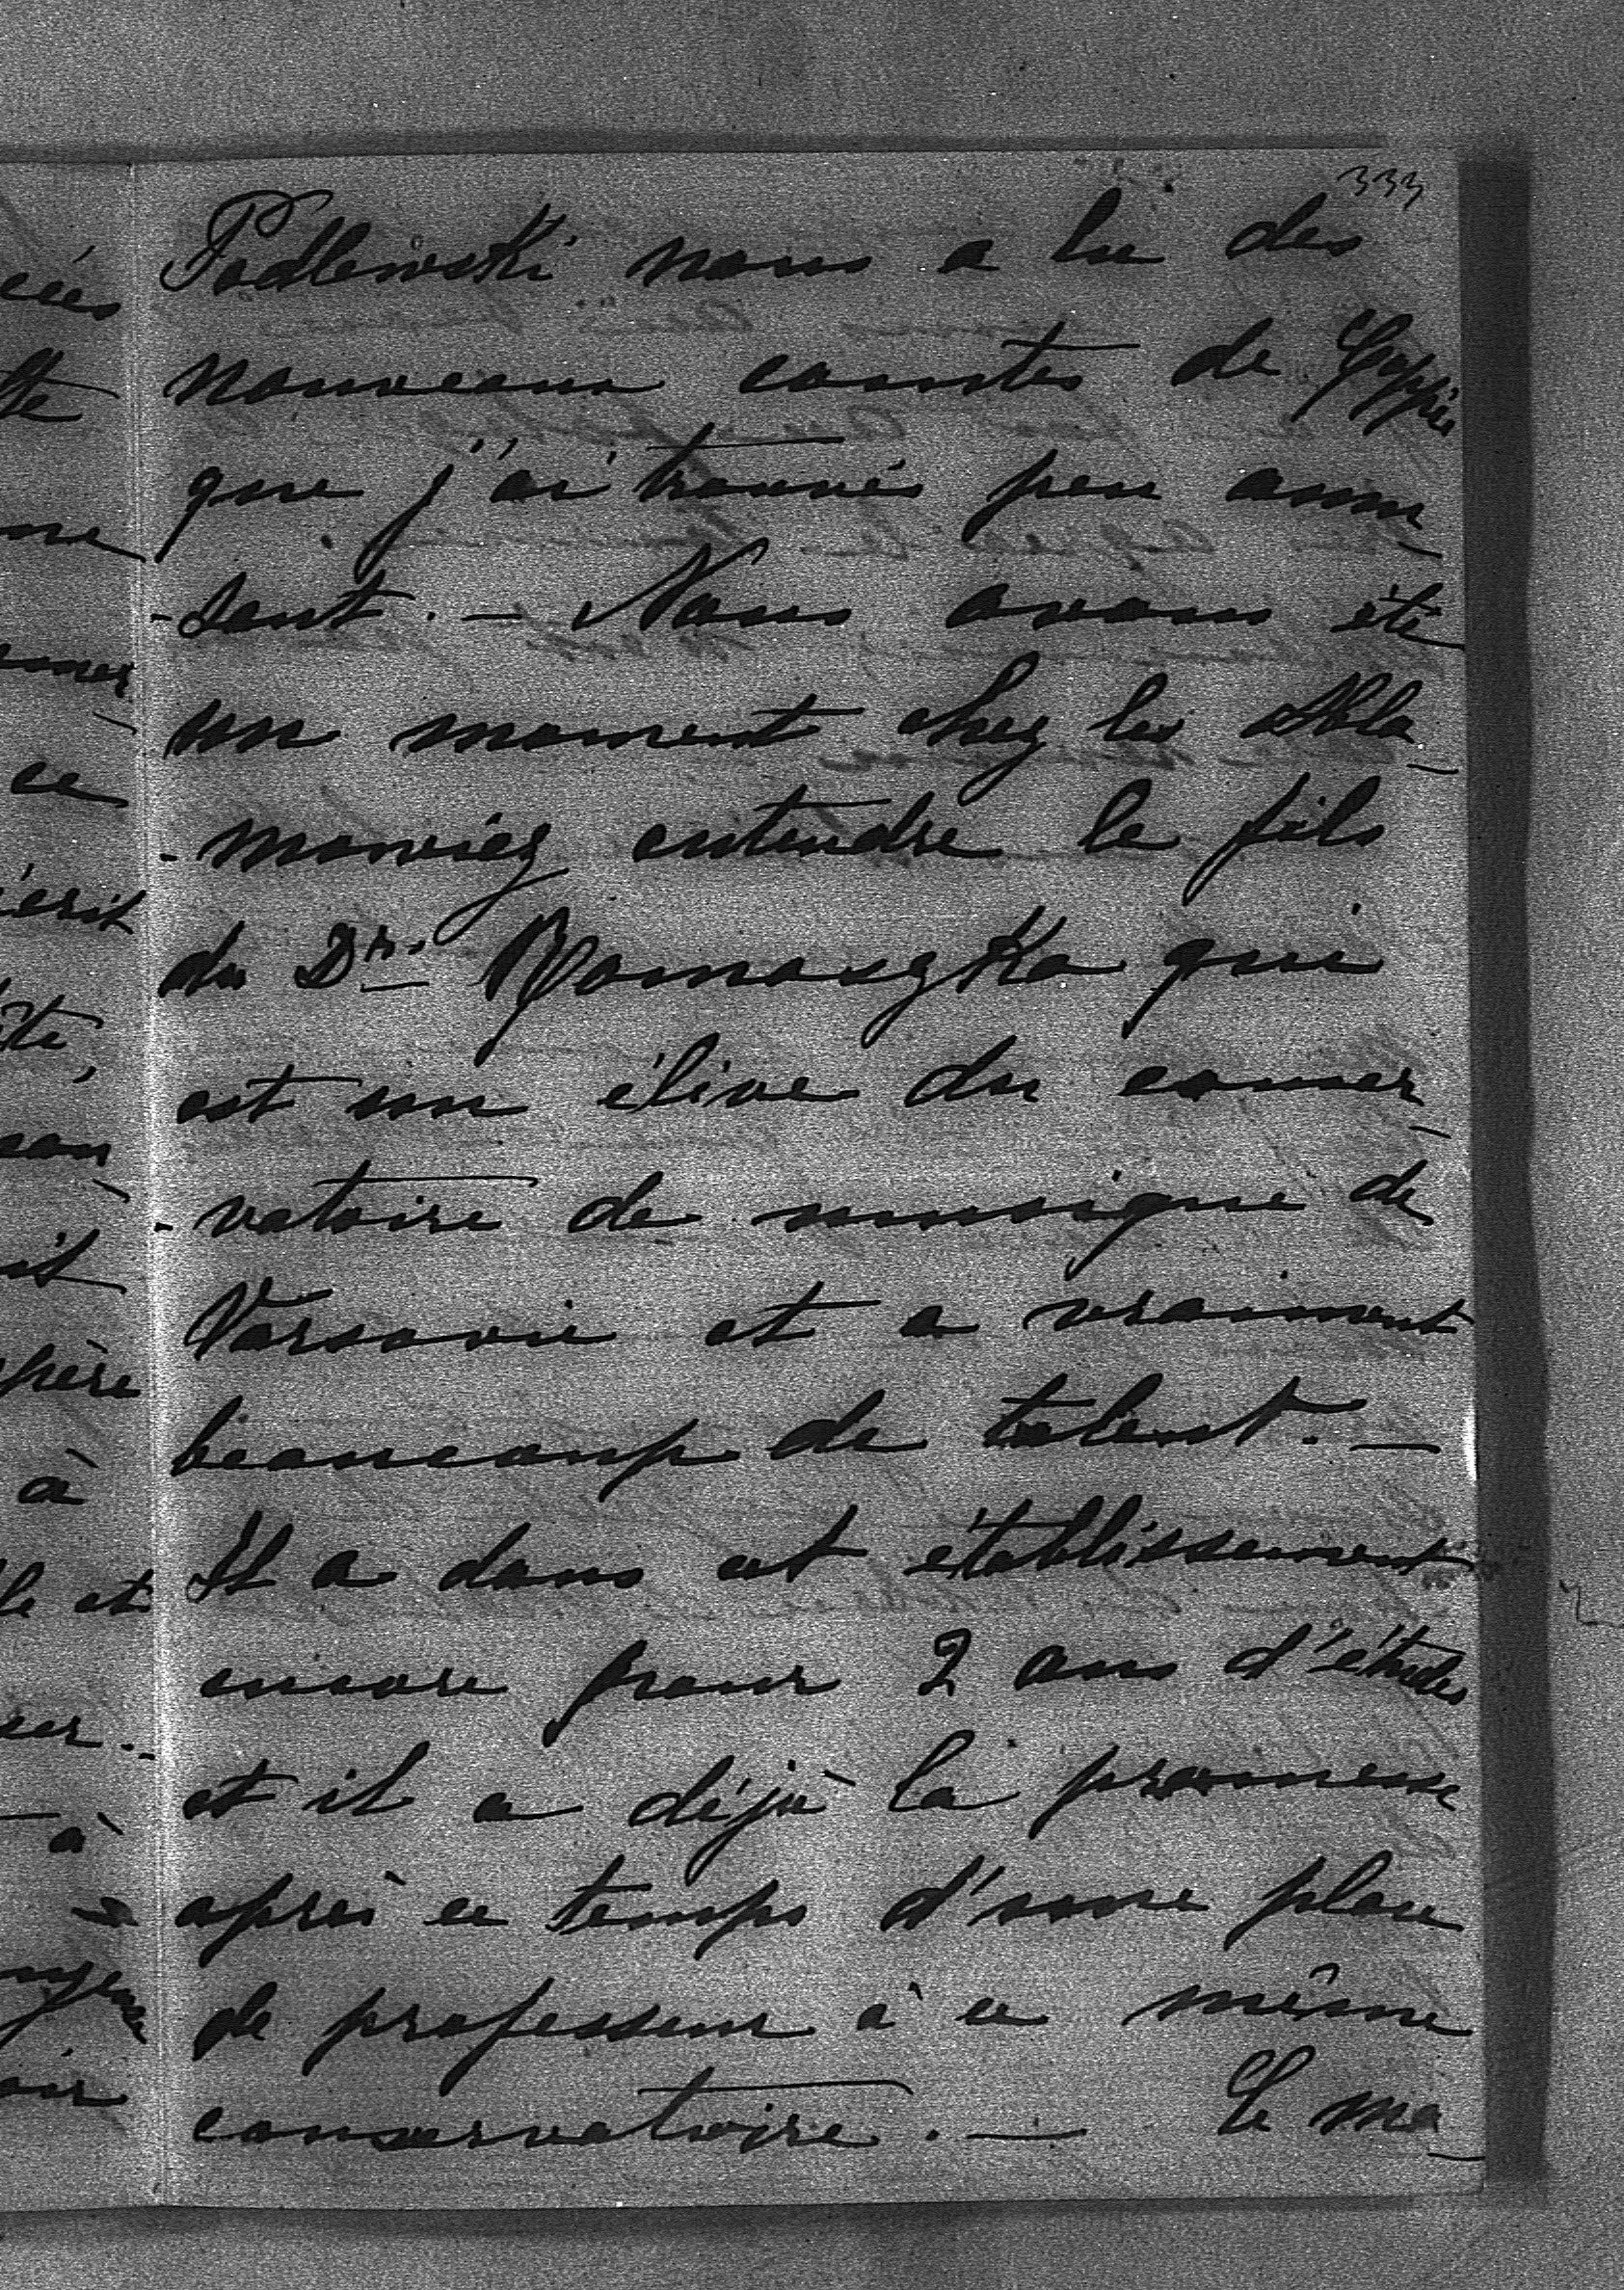 333
Podlewski nous a lu des
nouveaux contes de
que j'ai trouvés peu amu-
-sant. — Nous avons été
un moment chez les Abla-
-mowicz entendre le fils
du Dr. Romaszko qui
est un élève du conser-
-vatoire de musique de
Varsovie et a vraiment
beaucoup de talent. —
Il a dans cet établissement
encore pour 2 ans d'études
et il a déjà la promesse
après ce temps d'une place
de professeur à ce même
conservatoire. — Le ma-